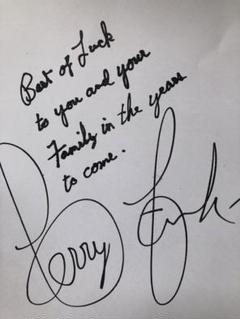 Best of Luck
to you and your
Family in the years
to come.